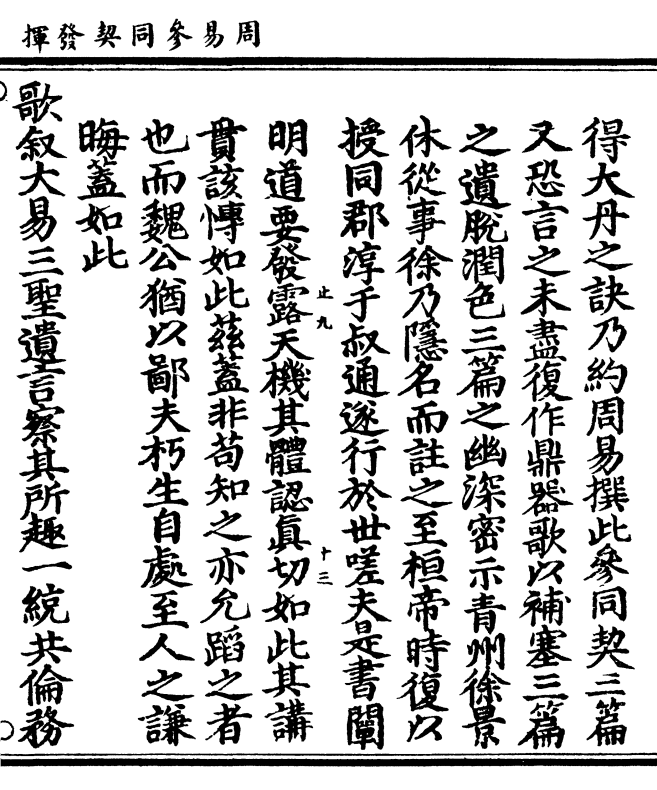 周易參同契發揮
得大丹之訣乃約周易撰此參同契三篇
又恐言之未盡復作鼎器歌以補塞三篇
之遺脫潤色三篇之幽深密示青州徐景
休從事徐乃隱名而註之至桓帝時復以
授同郡淳于叔通遂行於世嗟夫是書闡
明道要發露天機其體認真切如此其講
貫該慱如此茲蓋非苟知之亦允蹈之者
也而魏公猶以鄙夫朽生自處至人之謙
晦蓋如此
歌叙大易三聖遺言察其所趣一統共倫務
止九
十三